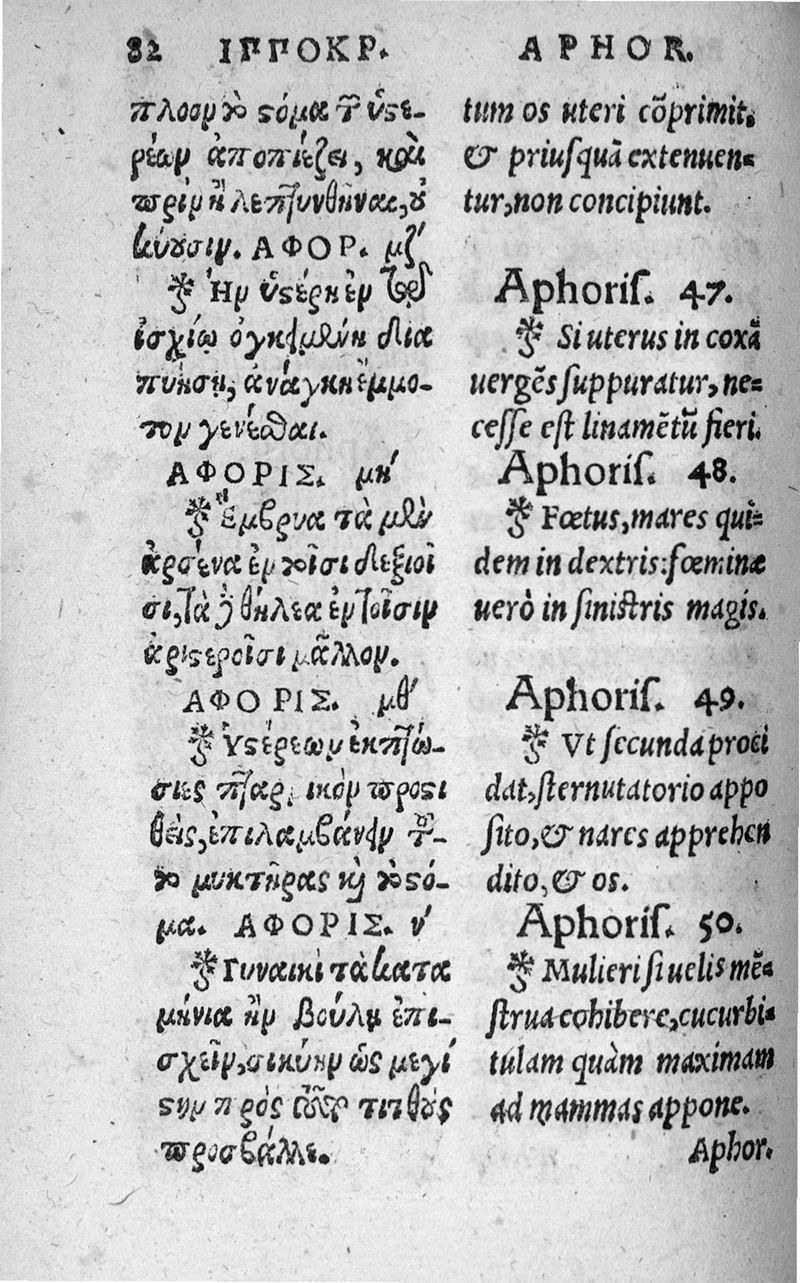 82 ΙΠΠΟΚΡ.
πλοον τὸ στόμα τῶν ὑστε-
ρέων ἀποπιέζει, καὶ
πρὶν ἢ λεπτυνθῆναι, οὐ
κύουσιν. ΑΦΟΡ. μζʹ
Ἢν ὑστέρη ἐν τῷ
ἰσχίῳ ὀγκειμένη δια
πυήσῃ, ἀνάγκη ἔμμο-
τον γενέσθαι.
ΑΦΟΡΙΣ. μηʹ
Ἔμβρυα τὰ μὲν
ἄρσενα ἐν τοῖσι δεξιοῖ
σι, τὰ δὲ θήλεα ἐν τοῖσιν
ἀριστεροῖσι μᾶλλον.
ΑΦΟΡΙΣ. μθʹ
Ὑστέρεων ἐκπτώ-
σιες πταρμικὸν προσθ
θεὶς, ἐπιλαμβάνειν τοὺ-
μυκτῆρας καὶ τὸ στό-
μα. ΑΦΟΡΙΣ. νʹ
Γυναικὶ τὰ κατα
μήνια ἢν βούλῃ ἐπι-
σχεῖν, σικύην ὡς μεγί
στην πρὸς τιτθοὺς
προσβάλλε.
APHOR.
tum os uteri cōprimit.
& priusquā extenuen-
tur, non concipiunt.
Aphoris. 47.
Si uterus in coxā
uergēs suppuratur, ne-
cesse est linamētū fieri.
Aphoris. 48.
Fœtus, mares qui-
dem in dextris: fœminæ
uerò in sinistris magis.
Aphoris. 49.
Vt secunda proci
dat, sternutatorio appo
sito, & nares apprehen
dito, & os.
Aphoris. 50.
Mulieri si uelis mē-
strua cohibere, cucurbi-
tulam quàm maximam
ad mammas appone.
Aphor.